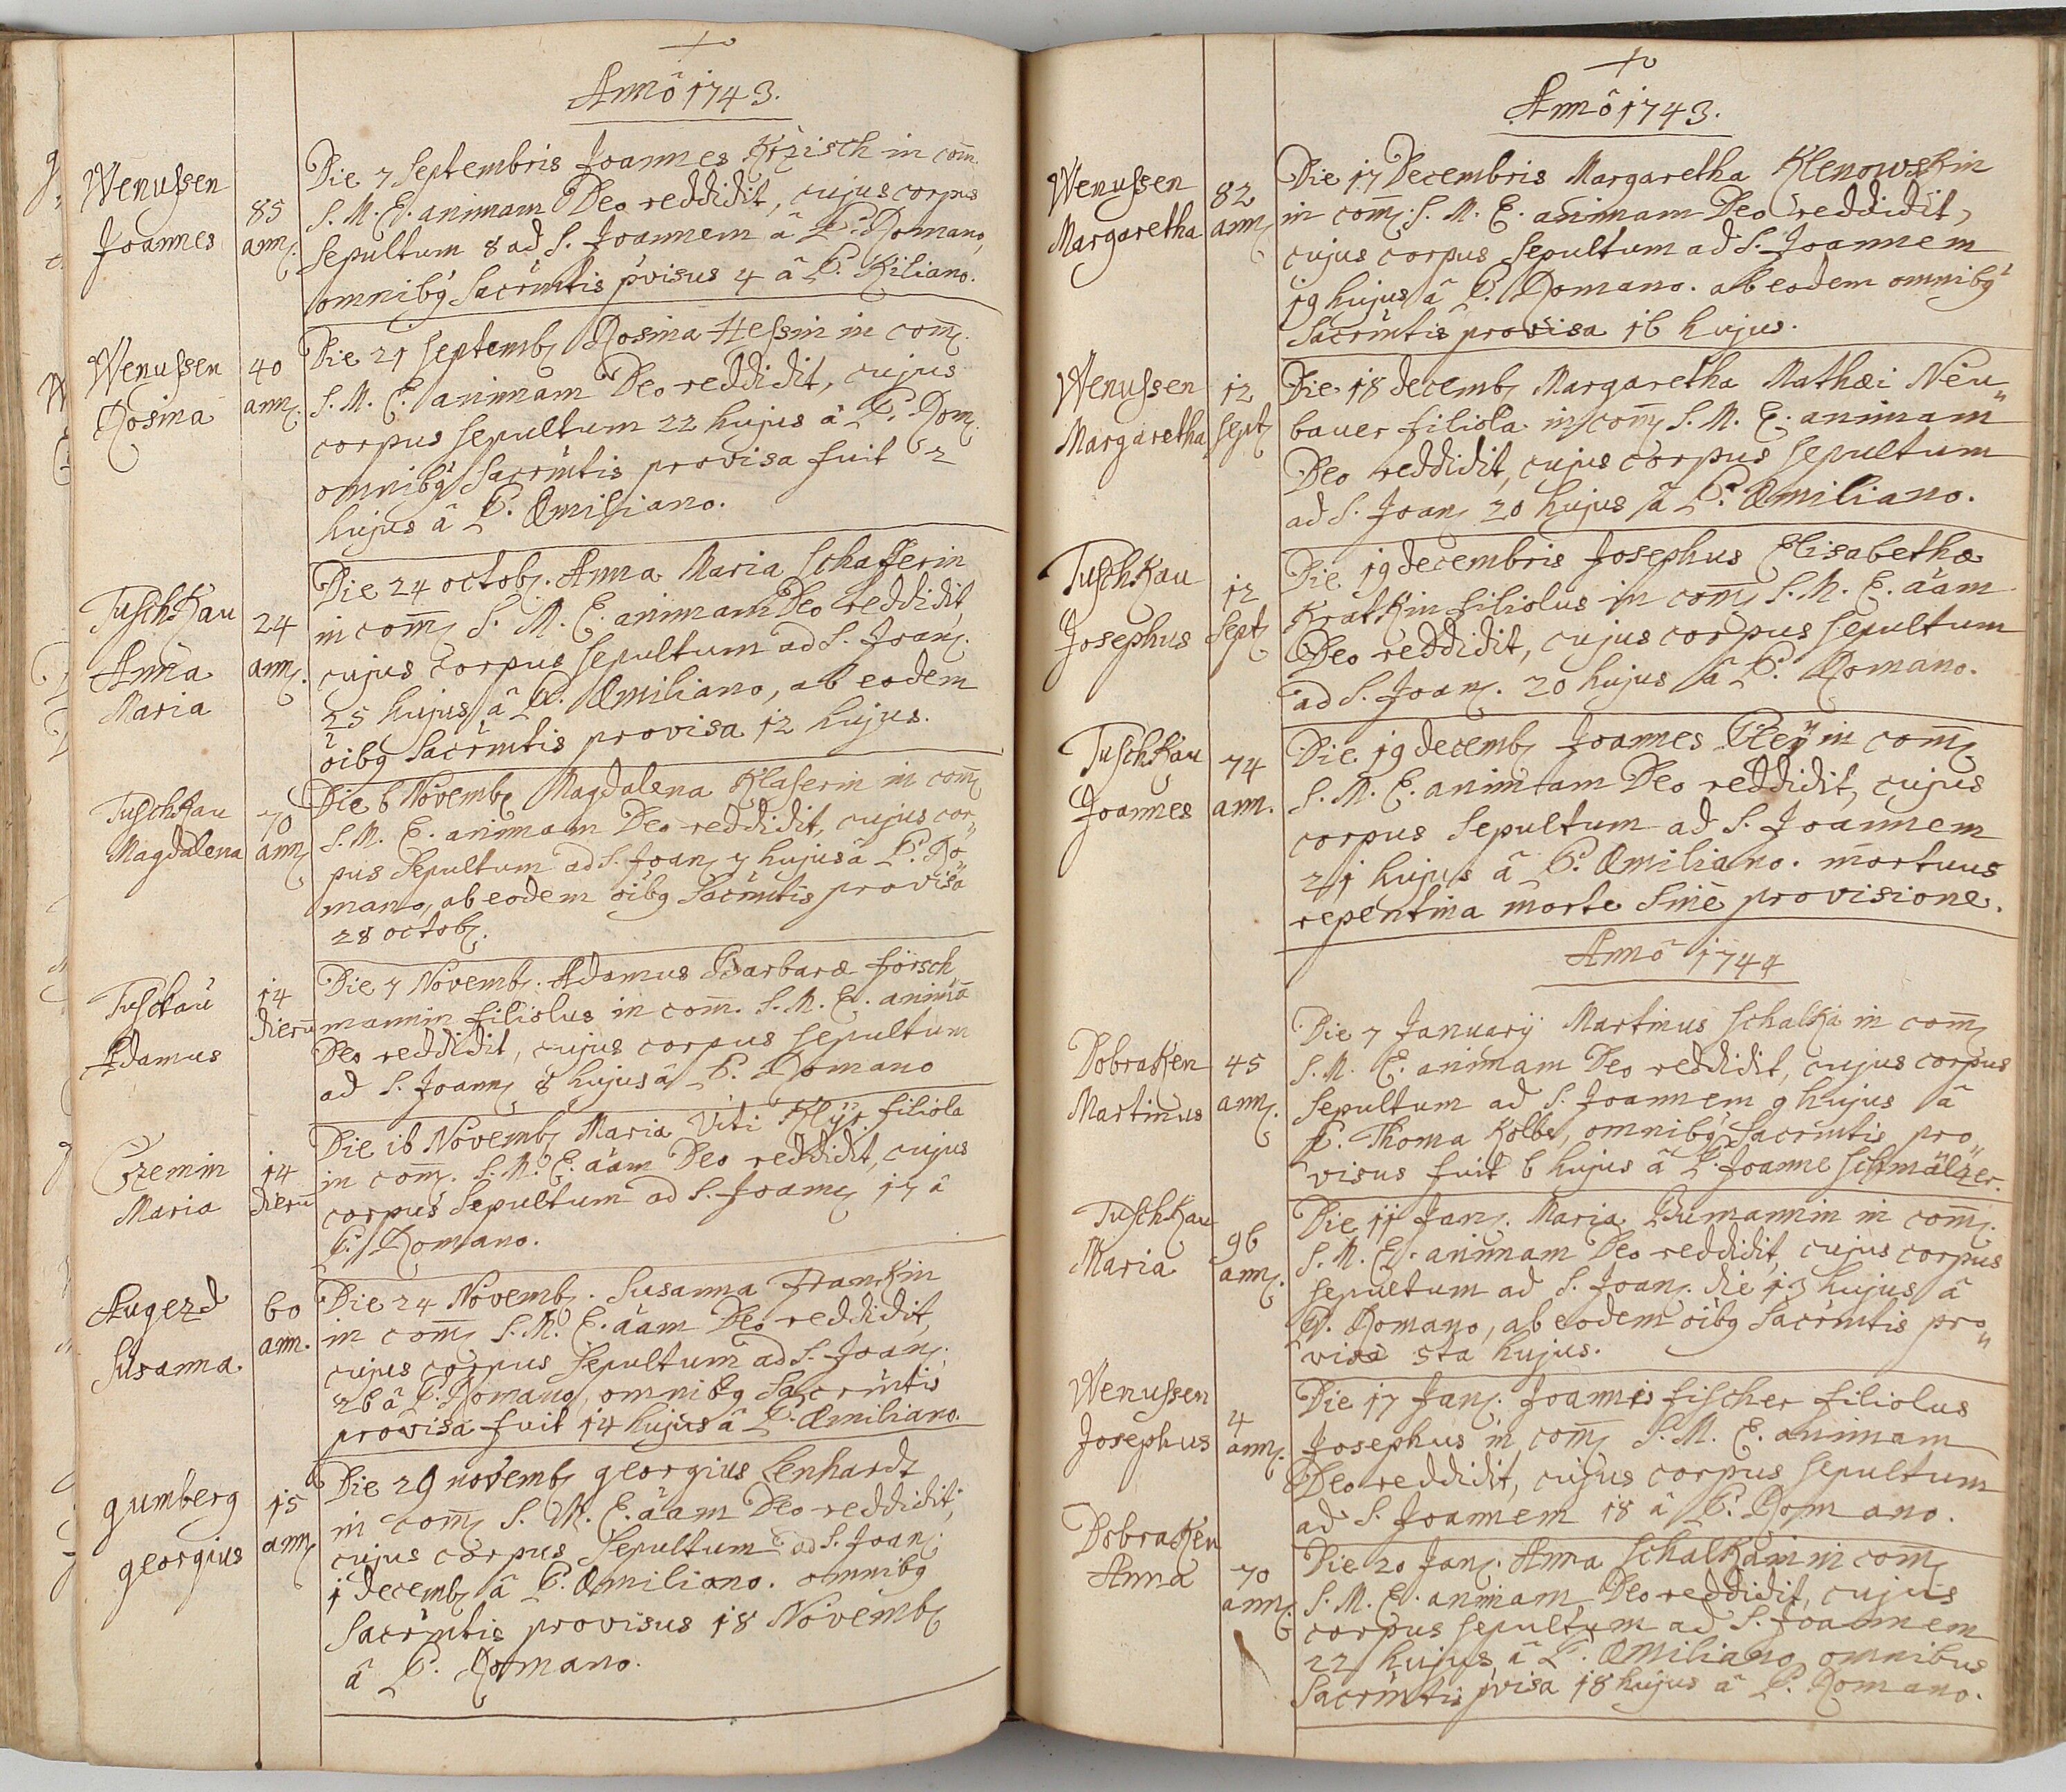 Annô 1743.
Wenussen
Joannes
85
ann.
Die 7 Septembris Joannes Krzisch in com̄.
S. M. E. animam Deo reddidit, cujus corpus
sepultum 8 ad S. Joannem â P. Romano,
omnibq Sacrm̄tis pvisus 4 â P. Kiliano.
Wenussen
Rosina
40
ann.
Die 21 Septemb. Rosina Hessin in com̄.
S. M. E. animam Deo reddidit, cujus
corpus sepultum 22 hujus â P. Rom.
omnibq Sacrm̄tis provisa fuit
hujus â P. Æmiliano.
Tuschkau
Anna
Maria
24
ann.
Die 24 octob. Anna Maria Schafferin
in com̄ S. M. E. animam Deo reddidit
cujus corpus sepultum ad S. Joan.
25 hujus â P. Æmiliano, ab eodem
ōibq Sacrm̄tis provisa 12 hujus.
Tuschkau
Magdalena
70
ann
Die 6 Novemb Magdalena Klaserin in com̄
S. M. E. animam Deo reddidit, cujus cor„
pus sepultum ad S. Joan 7 hujus â P. Ro„
mano, ab eodem ōibq Sacrm̄tis provisa
28 octob.
Tuschkau
Adamus
14
dierū
Die 7 Novemb. Adamus Barbaræ försch
mannin filiolus in com̄. S. M. E. animā
Deo reddidit, cujus corpus sepultum
ad S. Joann 8 hujus â P. Romano
Czemin
Maria
14
dierū
Die 16 Novemb Maria Viti Klÿr filiola
in com̄. S. M. E. āam Deo reddidit, cujus
corpus sepultum ad S. Joann 17 â
P. Romano.
Augezd
Susanna
60
ann.
Die 24 Novemb. Susanna Franckin
in com̄ S. M. E. āam Deo reddidit,
cujus corpus sepultum ad S. Joan.
26 â P. Romano, omnibq Sacrm̄tis
provisa fuit 14 hujus â P. Æmiliano.
gumberg
georgius
15
ann
Die 29 novemb georgius Lenhardt
in com̄ S. M. E. āam Deo reddidit,
cujus corpus sepultum ad S. Joan.
1 decemb â P. Æmiliano. omnibq
Sacrm̄tis provisus 18 Novemb
â P. Romano.
Annô 1743.
Wenussen
Margaretha
82
ann
Die 17 Decembris Margaretha Klenowskin
in com̄. S. M. E. animam Deo reddidit,
cujus corpus sepultum ad S. Joannem
19 hujus â P. Romano. ab eodem omnibq
Sacrm̄tis provisa 16 hujus.
Wenussen
Margaretha
12
sept
Die 18 decemb Margaretha Mathæi Neu„
bauer filiola in com̄ S. M. E. animam
Deo reddidit, cujus corpus sepultum
ad S. Joan 20 hujus â P. Æmiliano.
Tuschkau
Josephus
12
sept
Die 19 decembris Josephus Elisabethæ
Kratkin filiolus in com̄ S. M. E. āam
Deo reddidit, cujus corpus sepultum
ad S. Joan. 20 hujus â P. Romano.
Tuschkau
Joannes
74
ann.
Die 19 decemb Joannes Pleÿ in com̄
S. M. E. animam Deo reddidit, cujus
corpus sepultum ad S. Joannem
21 hujus â P. Æmiliano. mortuus
repentina morte sine provisione.
Annô 1744
Dobraken
Martinus
45
ann.
Die 7 Januarÿ Martinus Schalka in com̄
S. M. E. animam Deo reddidit, cujus corpus
sepultum ad S. Joannem 9 hujus â
P. Thoma Kolbe, omnibq Sacrm̄tis pro„
visus fuit 6 hujus â P. Joanne Schmältzer.
Tuschkau
Maria
96
ann.
Die 11 Jan. Maria Bumannin in com̄.
S. M. E. animam Deo reddidit, cujus corpus
sepultum ad S. Joan. die 13 hujus â
P. Romano, ab eodem ōibq Sacrm̄tis pro„
visa 5ta hujus.
Wenussen
Josephus
4
ann.
Die 17 Jan. Joannis fischer filiolus
Josephus in com̄ S. M. E. animam
Deo reddidit, cujus corpus sepultum
ad S. Joannem 18 â P. Romano.
Dobraken
Anna
70
ann.
Die 20 Jan. Anna Schalkain in com̄
S. M. E. animam Deo reddidit, cujus
corpus sepultum ad S. Joannem
22 hujus â P. Æmiliano omnibus
Sacrm̄tis pvisa 18 hujus â P. Romano.